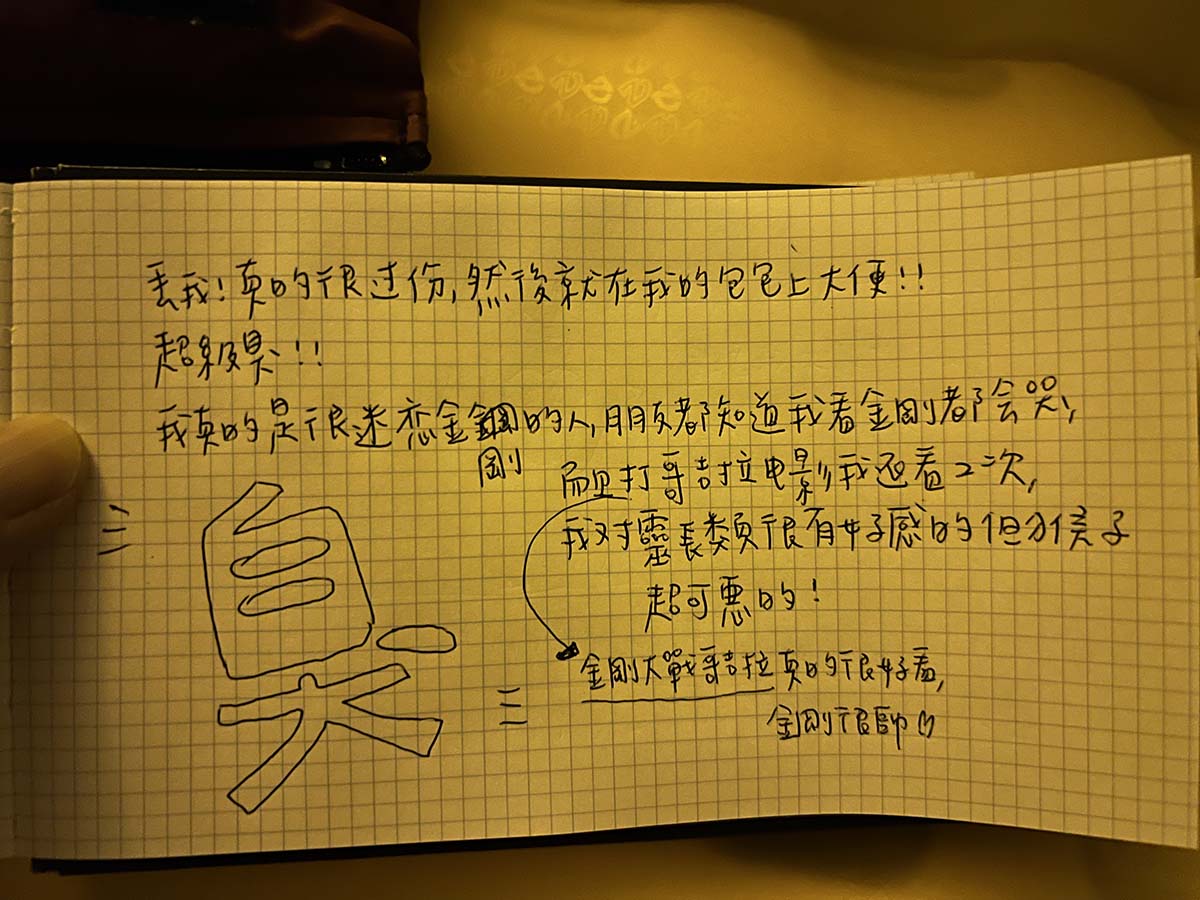 丟我!真的很过份,然後就在我的包包上大便!!
超級臭!!
我真的是很迷恋金剛的人,朋友都知道我看金剛都会哭,
而且打哥吉拉电影我还看2次,
我对靈長類很有好感的但猴子
超可惡的!
臭
金剛大戰哥吉拉真的很好看,
金剛很帥